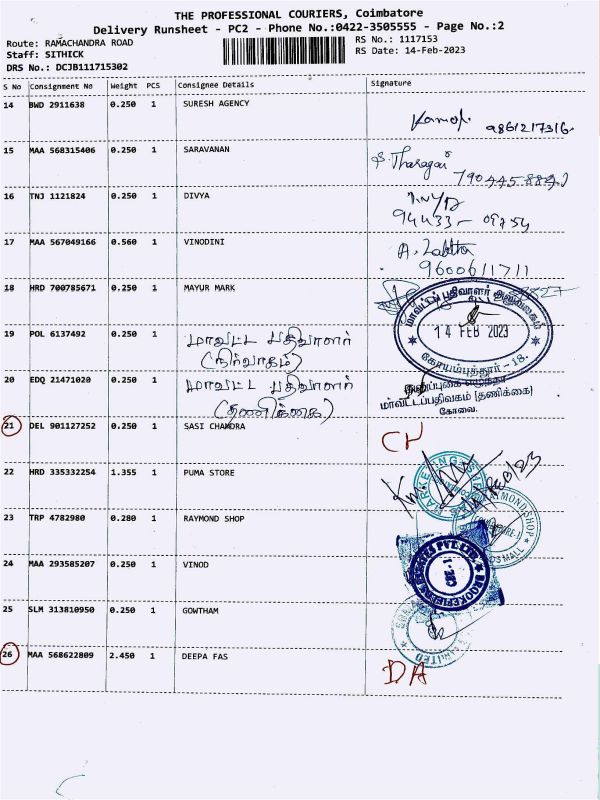 THE PROFESSIONAL COURIERS, Coimbatore
Delivery Runsheet - PC2 - Phone No.:0422-3505555 - Page No.:2
Route: RAMACHANDRA ROAD
RS No.: 1117153
Staff: SITHICK
RS Date: 14-Feb-2023
DRS No.: DCJB111715302
S No Consignment No Weight PCS Consignee Details Signature
14 BWD 2911638 0.250 1 SURESH AGENCY
15 MAA 568315406 0.250 1 SARAVANAN
16 TNJ 1121824 0.250 1 DIVYA
17 MAA 567049166 0.560 1 VINODINI
A.
9600611711
18 HRD 700785671 0.250 1 MAYUR MARK
மாவட்டப் பதிவாளர் அலுவலகம்
14 FEB 2023
கோயம்புத்தூர் - 18.
19 POL 6137492 0.250 1 மாவட்ட பதிவாளர்
(நிர்வாகம்)
20 EDQ 21471020 0.250 1 மாவட்ட பதிவாளர்
(தணிக்கை)
மாவட்டப்பதிவகம் (தணிக்கை)
கோவை.
21 DEL 901127252 0.250 1 SASI CHANDRA CH
22 HRD 335332254 1.355 1 PUMA STORE
23 TRP 4782980 0.280 1 RAYMOND SHOP
RAYMOND SHOP
24 MAA 293585207 0.250 1 VINOD
25 SLM 313810950 0.250 1 GOWTHAM
26 MAA 568622809 2.450 1 DEEPA FAS DA